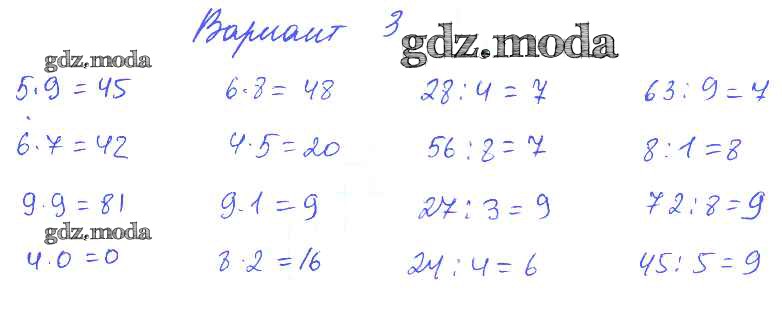 Вариант 3
gdz.moda
gdz.moda
5·9 = 45 6·8 = 48 28 : 4 = 7 63 : 9 = 7
6·7 = 42 4·5 = 20 56 : 8 = 7 8 : 1 = 8
9·9 = 81 9·1 = 9 27 : 3 = 9 72 : 8 = 9
gdz.moda
4·0 = 0 8·2 = 16 24 : 4 = 6 45 : 5 = 9